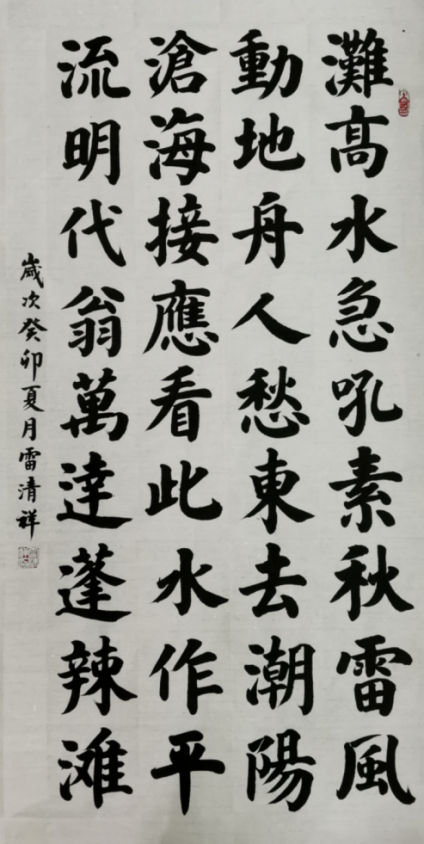 灘高水急吼素秋雷風
動地舟人愁東去潮陽
滄海接應看此水作平
流明代翁萬達蓬辣滩
歲次癸卯夏月雷清祥